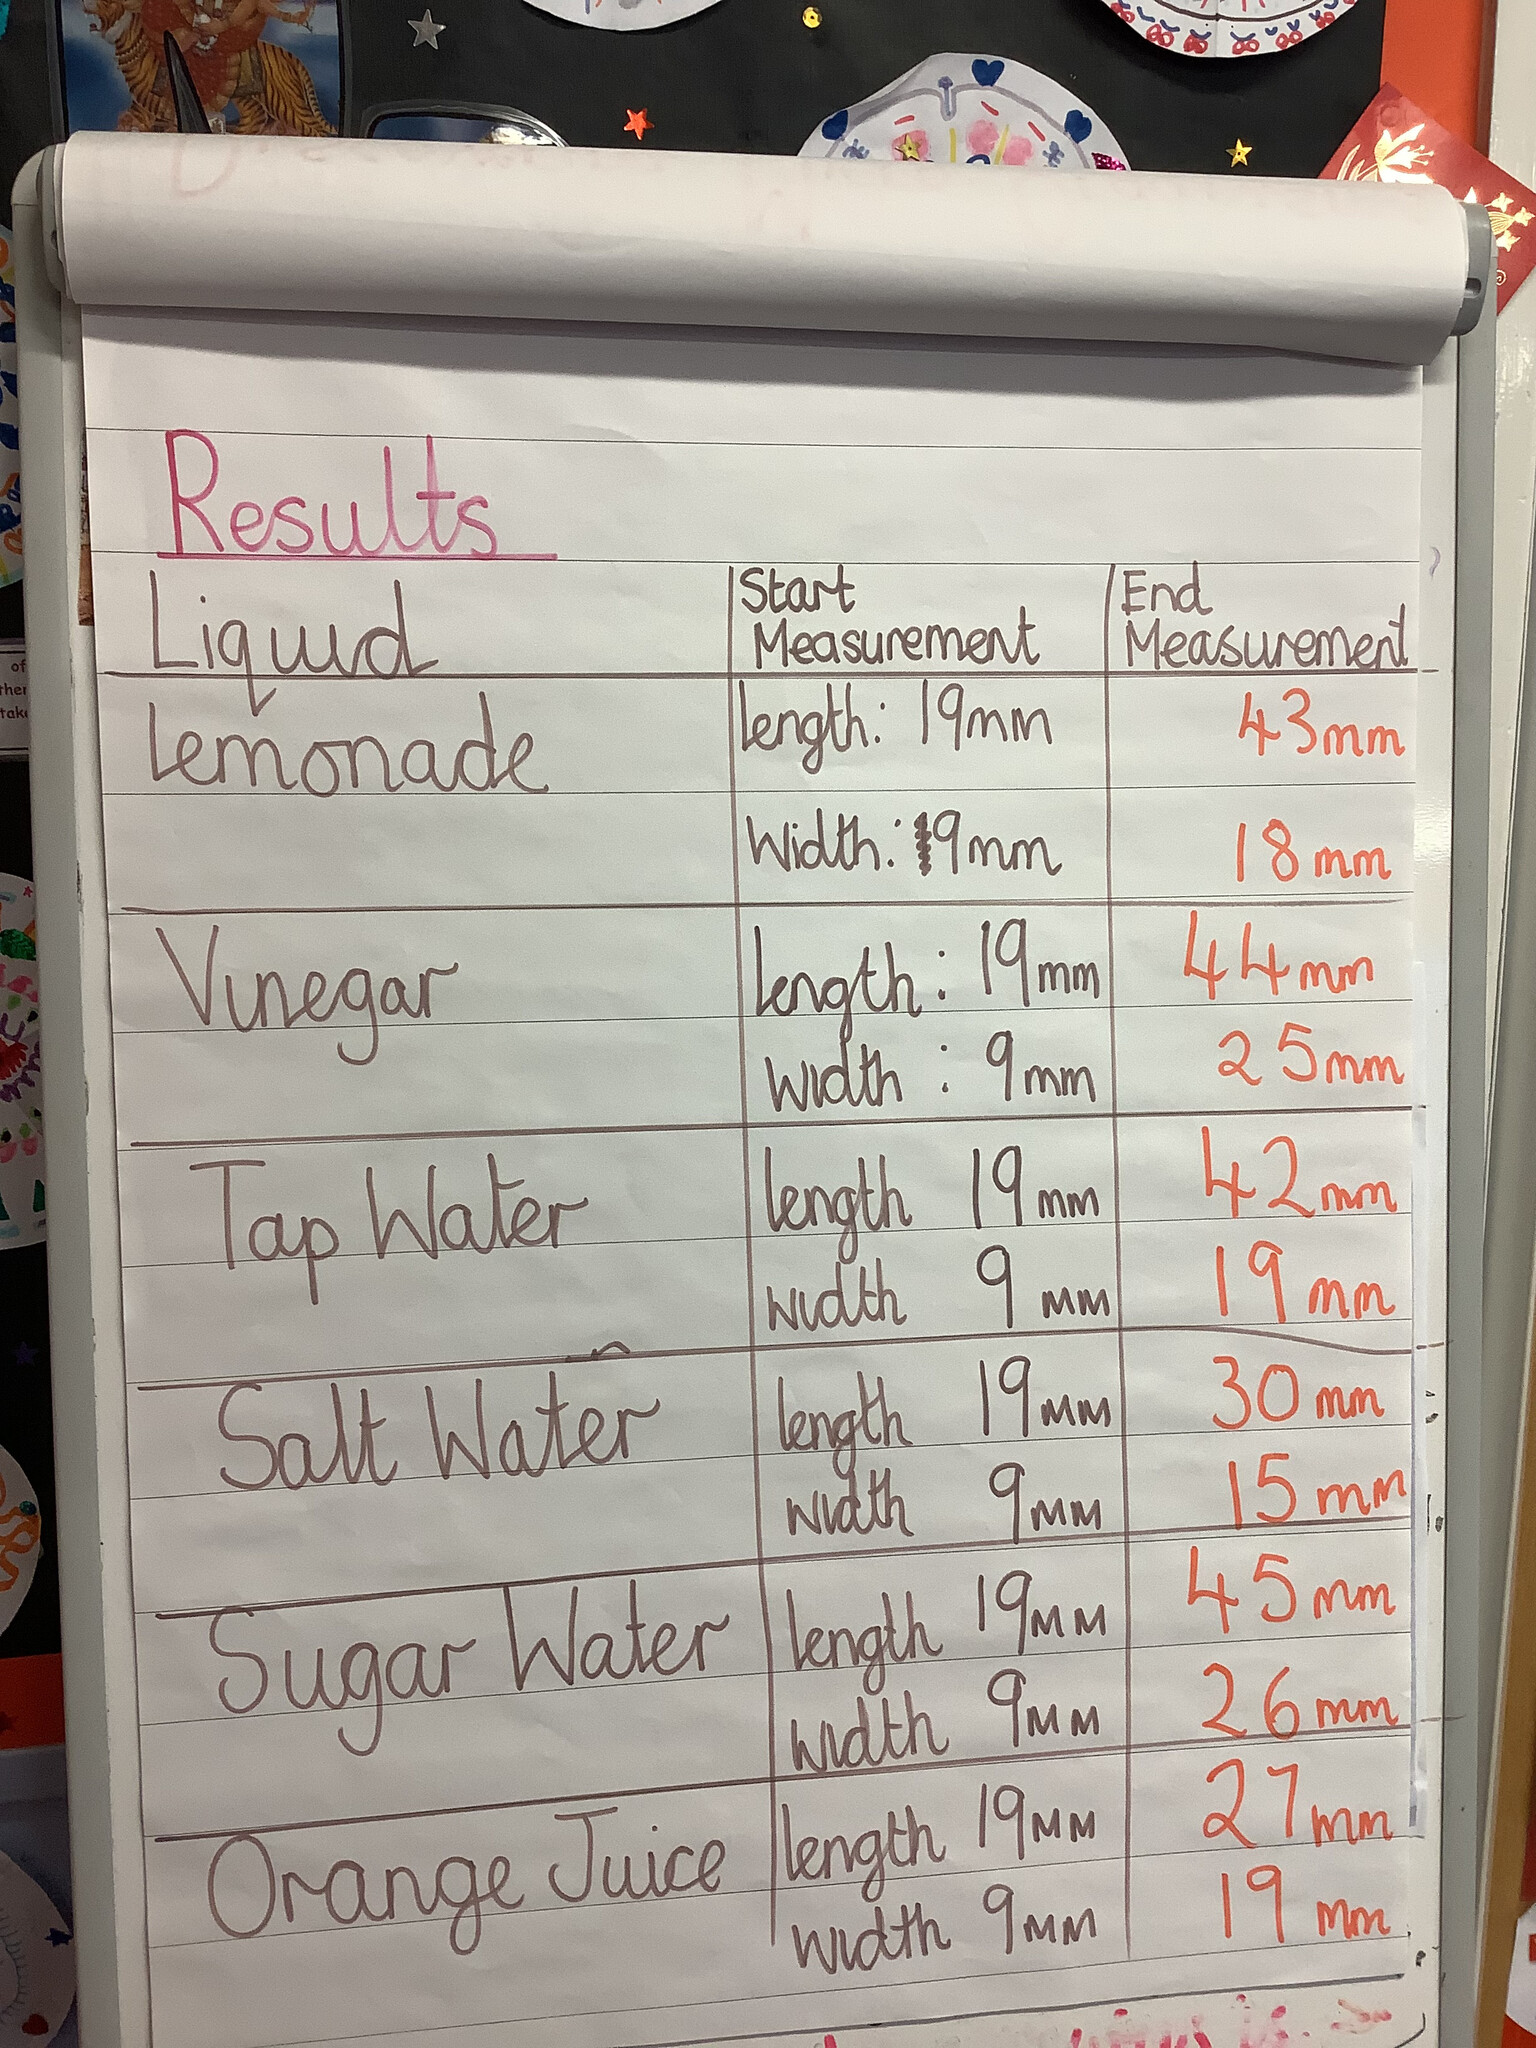 Results
Liquid Start Measurement End Measurement
Lemonade length: 19mm 43mm
Width: 9mm 18mm
Vinegar length: 19mm 44mm
width: 9mm 25mm
Tap Water length 19mm 42mm
width 9mm 19mm
Salt Water length 19mm 30mm
width 9mm 15mm
Sugar Water length 19mm 45mm
width 9mm 26mm
Orange Juice length 19mm 27mm
width 9mm 19mm